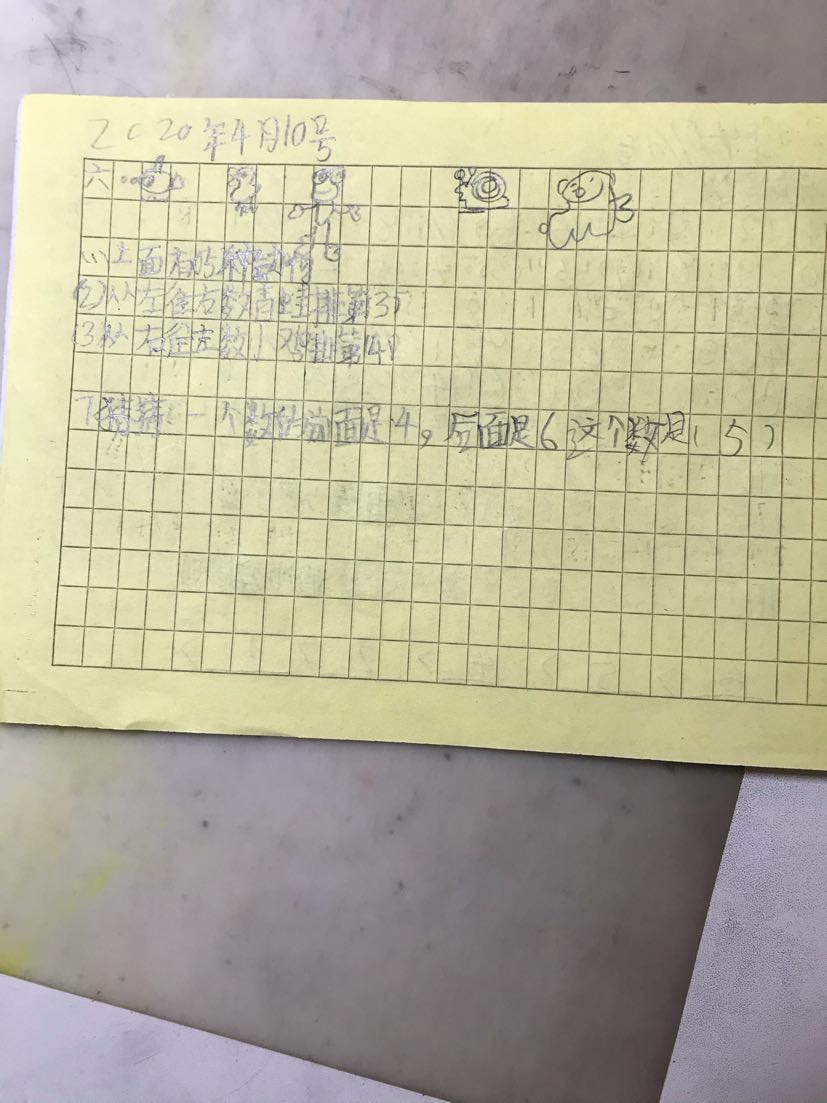 2020年4月10号
六
(1)上面有(5)种动物
(2)从左往右数青蛙排第3)
(3从右往左数小鸡排第(4)
7猜猜一个数的前面是4,后面是6这个数是(5)